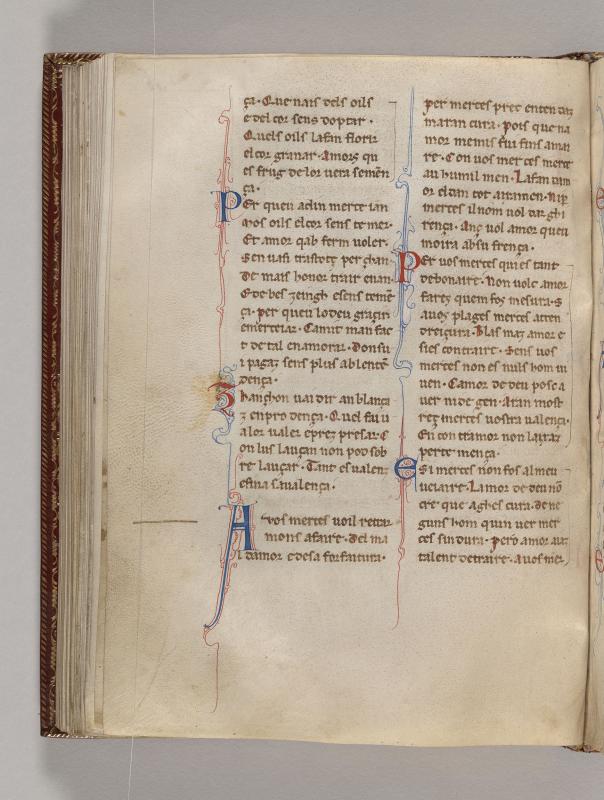 ça. Que nais dels oils
e del cor sens doptar.
Quels oils la fan florir
el cor granar. Amors qu
es frug de lor vera semēn
ça.
Per queu adin merce ian
mos oils el cor sens temer.
Et amor qab ferm voler.
Sen vasi trastotç per chan
De mais honor trair enan
E de bes zeingh e sens temē
ça. per queu lo deu graçir
e merceiar. Camit man fac
t de tal enamorar. Don su
i pagaz sens plus ablentē
dença.
Chanchon vai dir an blança
z en pro dença. Quel fai u
alor valer e prez presar. C
on lus lauçan non pod sob
re lauçar. Tant es valenz
e fina sa valença.
A vos merces voil retrar
mon s afaire. del ma
l damor e de sa forfaitura.
per merces prec enten
maran cura. Pois que na
mor me mis fui fins amai
re. Con vos merces merce
au humil men. La fan tam
or el dan tot airamen.
merces il nom vol dar ghi
rença. Anç vol amor queu
moira ab sufrença.
Per vos merces qui es tant
debonaire. Non volc amor
farez quem fos mesura. S
auos plages merces atten
dreiçura. Mas maz amor e
sies contraire. Sens vos
merces non es nuls hom vi
ven. Camor de deu posc a
ver ni de gen. Aran most
rez merces vostra valença.
En contramor non
per temença.
E si merces non fos al meu
veiaire. Lamor de deu nō
cre que aghes cura. de ne
guns hom quin ver mer
ces sin dura. Pero amor
talent de traire. a vos mer